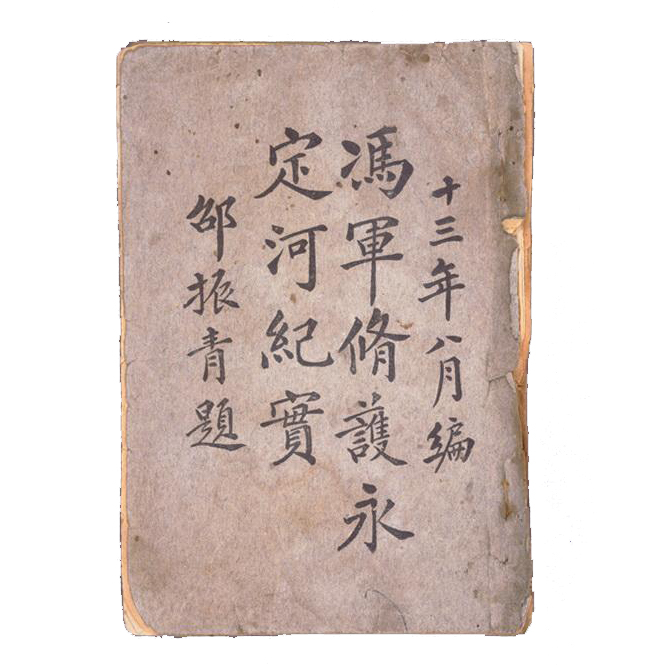 十三年八月編
馮軍脩護永
定河紀實
邵振青題